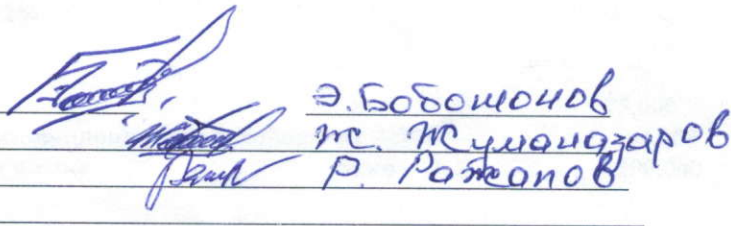 Э. Бобомонов
Ж. Жуманазаров
Р. Ражапов